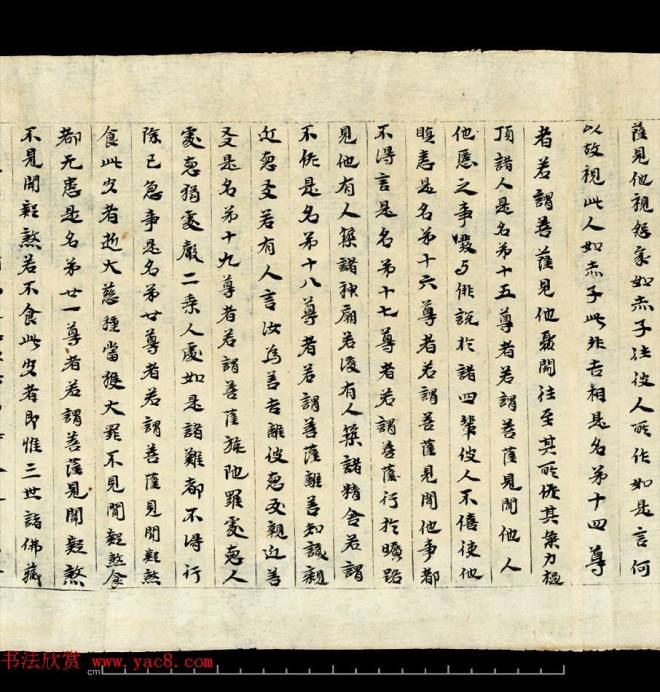 薩見他視怨家如赤子往彼人所作如是言何
以故視此人如赤子此非吉相是名弟十四尊
者若謂菩薩見他鬪往至其所作其築力棰
頂諸人是名弟十五尊者若謂菩薩見聞他人
他屏之事發与俳說於諸四輩彼人不僖使他
瞋恚是名弟十六尊者若謂菩薩見聞他事都
不得言是名弟十七尊者若謂菩薩行於曠路
見他有人築諸神廟若復有人築諸精舍若謂
不作是名弟十八尊者若謂菩薩離善知識親
近惡友若有人言汝為善吉離彼惡友親近善
友是名弟十九尊者若謂菩薩旃陁羅處惡人
處惡狗處嚴二乘人處如是諸難都不得行
除已急事是名弟廿尊者若謂菩薩見聞疑煞
食此宍者逝大慈種當獲大罪不見聞疑煞食
都无患是名弟廿一尊者若謂菩薩見聞疑煞
不見聞疑煞若不食此宍者即惟三世諸佛藏
书法欣赏 www.yac8.com
cm